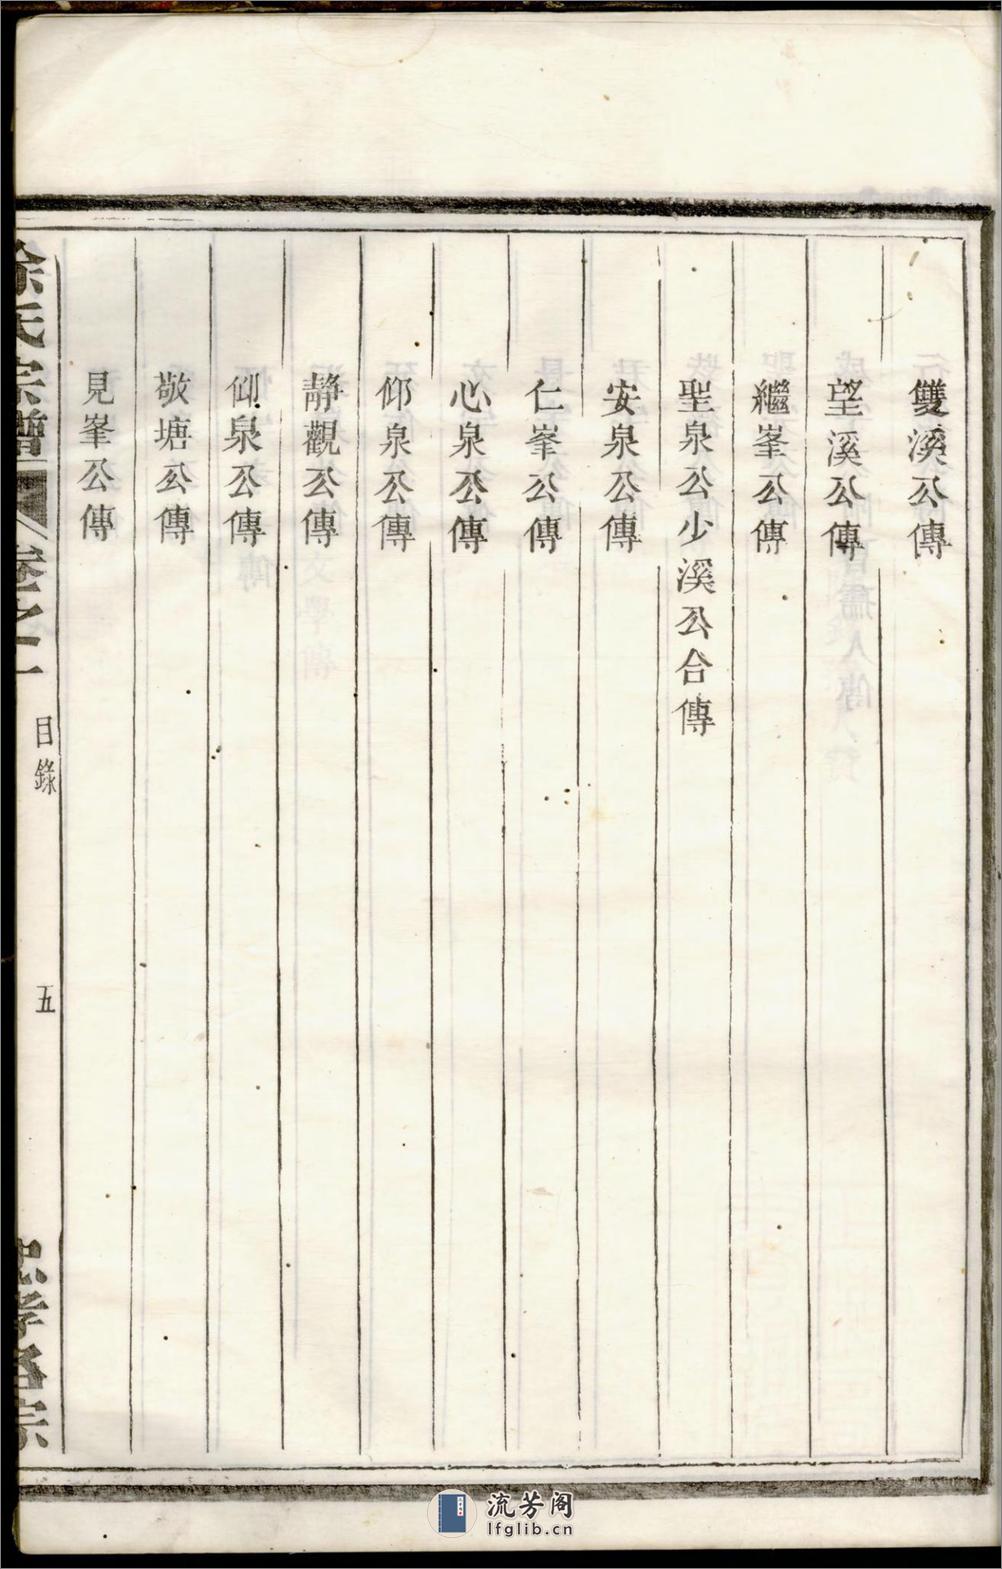 雙溪公傳
望溪公傳
繼峯公傳
聖泉公少溪公合傳
安泉公傳
仁峯公傳
心泉公傳
仰泉公傳
靜觀公傳
仰泉公傳
敬塘公傳
見峯公傳
徐氏宗譜
卷之二
目錄
五
忠孝名宗
流芳阁
lfglib.cn